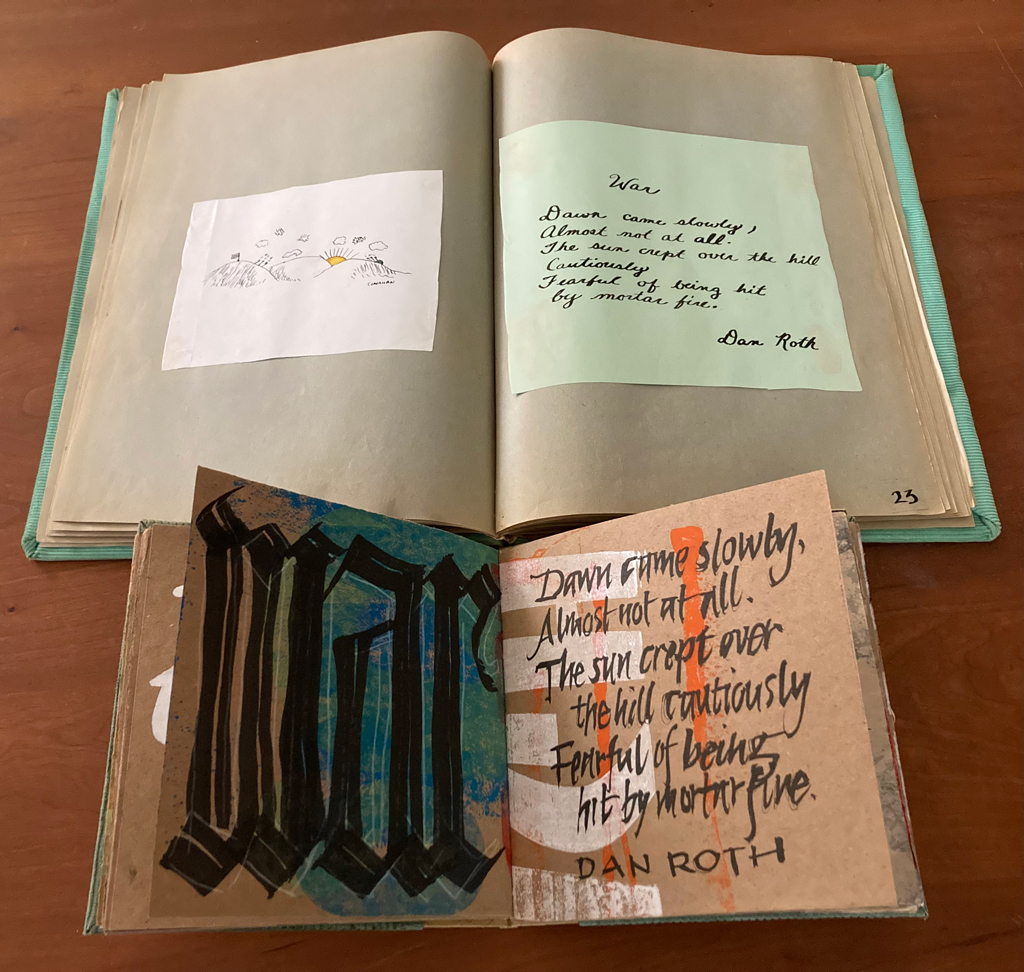 War
Dawn came slowly,
Almost not at all.
The sun crept over the hill
Cautiously
Fearful of being hit
by mortar fire.
Dan Roth
23
War
Dawn came slowly,
Almost not at all.
The sun crept over
the hill cautiously
Fearful of being
hit by mortar fire.
DAN ROTH